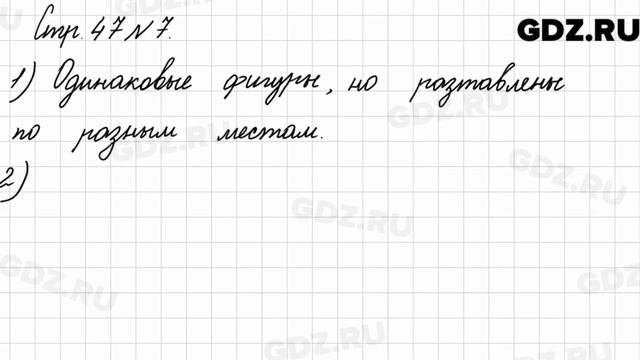 Стр. 47 № 7.
GDZ.RU
1) Одинаковые фигуры, но разтавлены
по разным местам.
2)
GDZ.RU
GDZ.RU
GDZ.RU
GDZ.RU
GDZ.RU
GDZ.RU
GDZ.RU